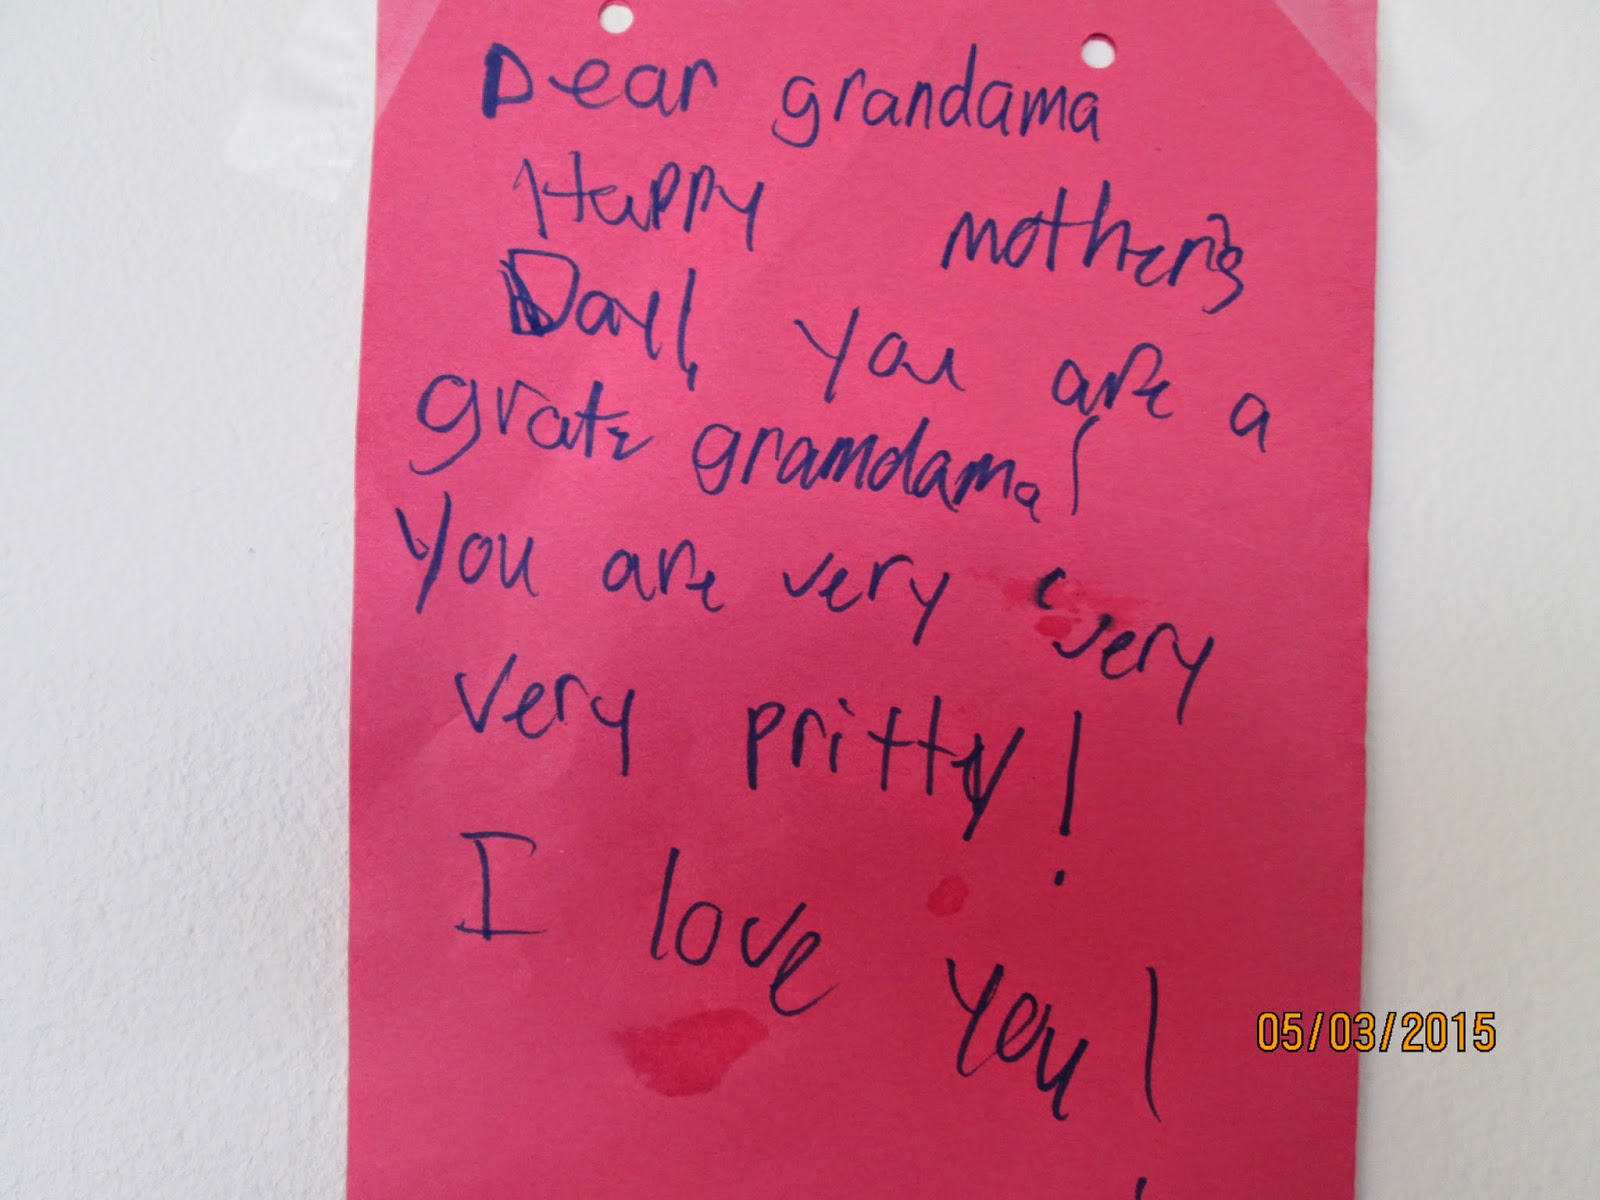 Dear grandama
Happy mother's
Day! You are a
grate gramdama!
You are very very
very pritty!
I love you!
05/03/2015